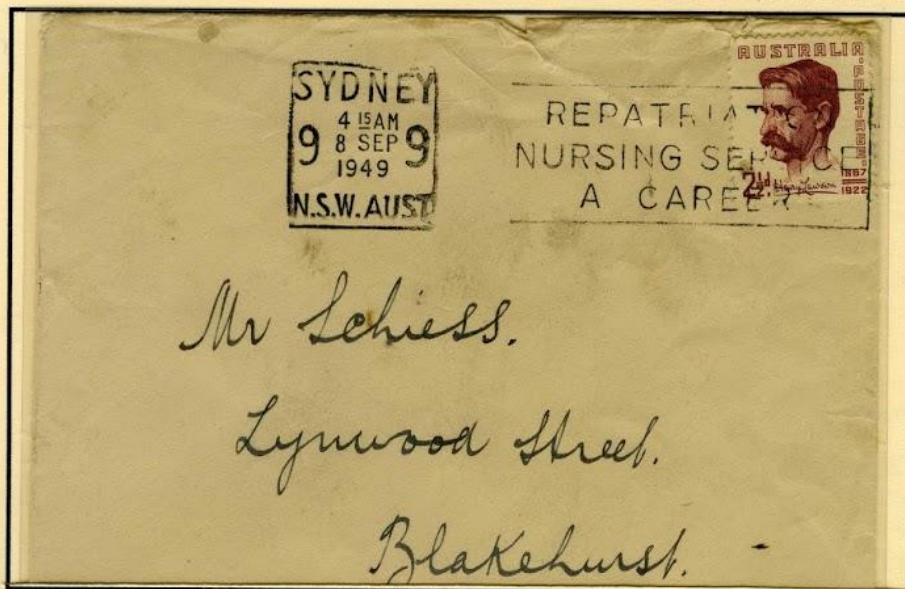 SYDNEY
4 15 AM
9 8 SEP 9
1949
N.S.W. AUST
REPATRIATION
NURSING SERVICE
A CAREER
AUSTRALIA
POSTAGE
2½d. Henry Lawson
1867
1922
Mr Schiess.
Lynwood Street.
Blakehurst.